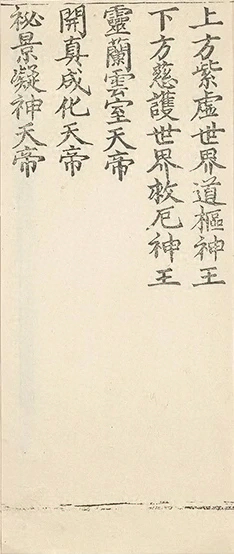 上方紫虛世界道樞神王
下方慈護世界救厄神王
靈蘭雲室天帝
開真成化天帝
祕景凝神天帝